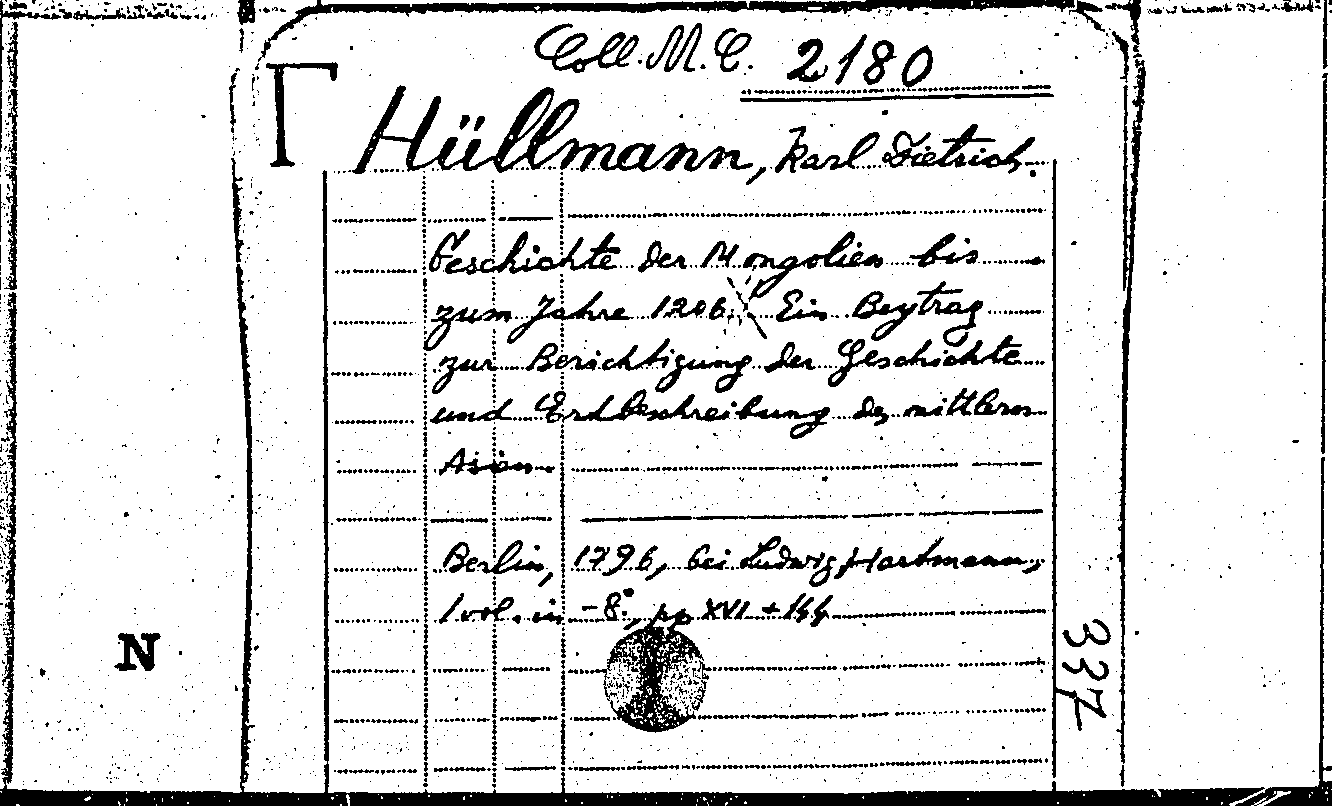 Coll. M. C. 2180
Γ
Hüllmann, Karl Dietrich.
Geschichte der Mongolien bis
zum Jahre 1206. Ein Beytrag
zur Berichtigung der Geschichte
und Erdbeschreibung des mittlern
Asien.
Berlin, 1796, bei Ludwig Hartmann,
1 vol. in -8°, pp XVI + 144
N
337